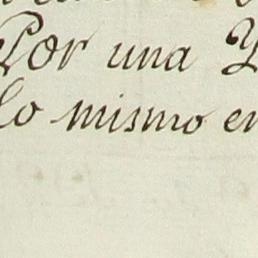 Por una Y
lo mismo en